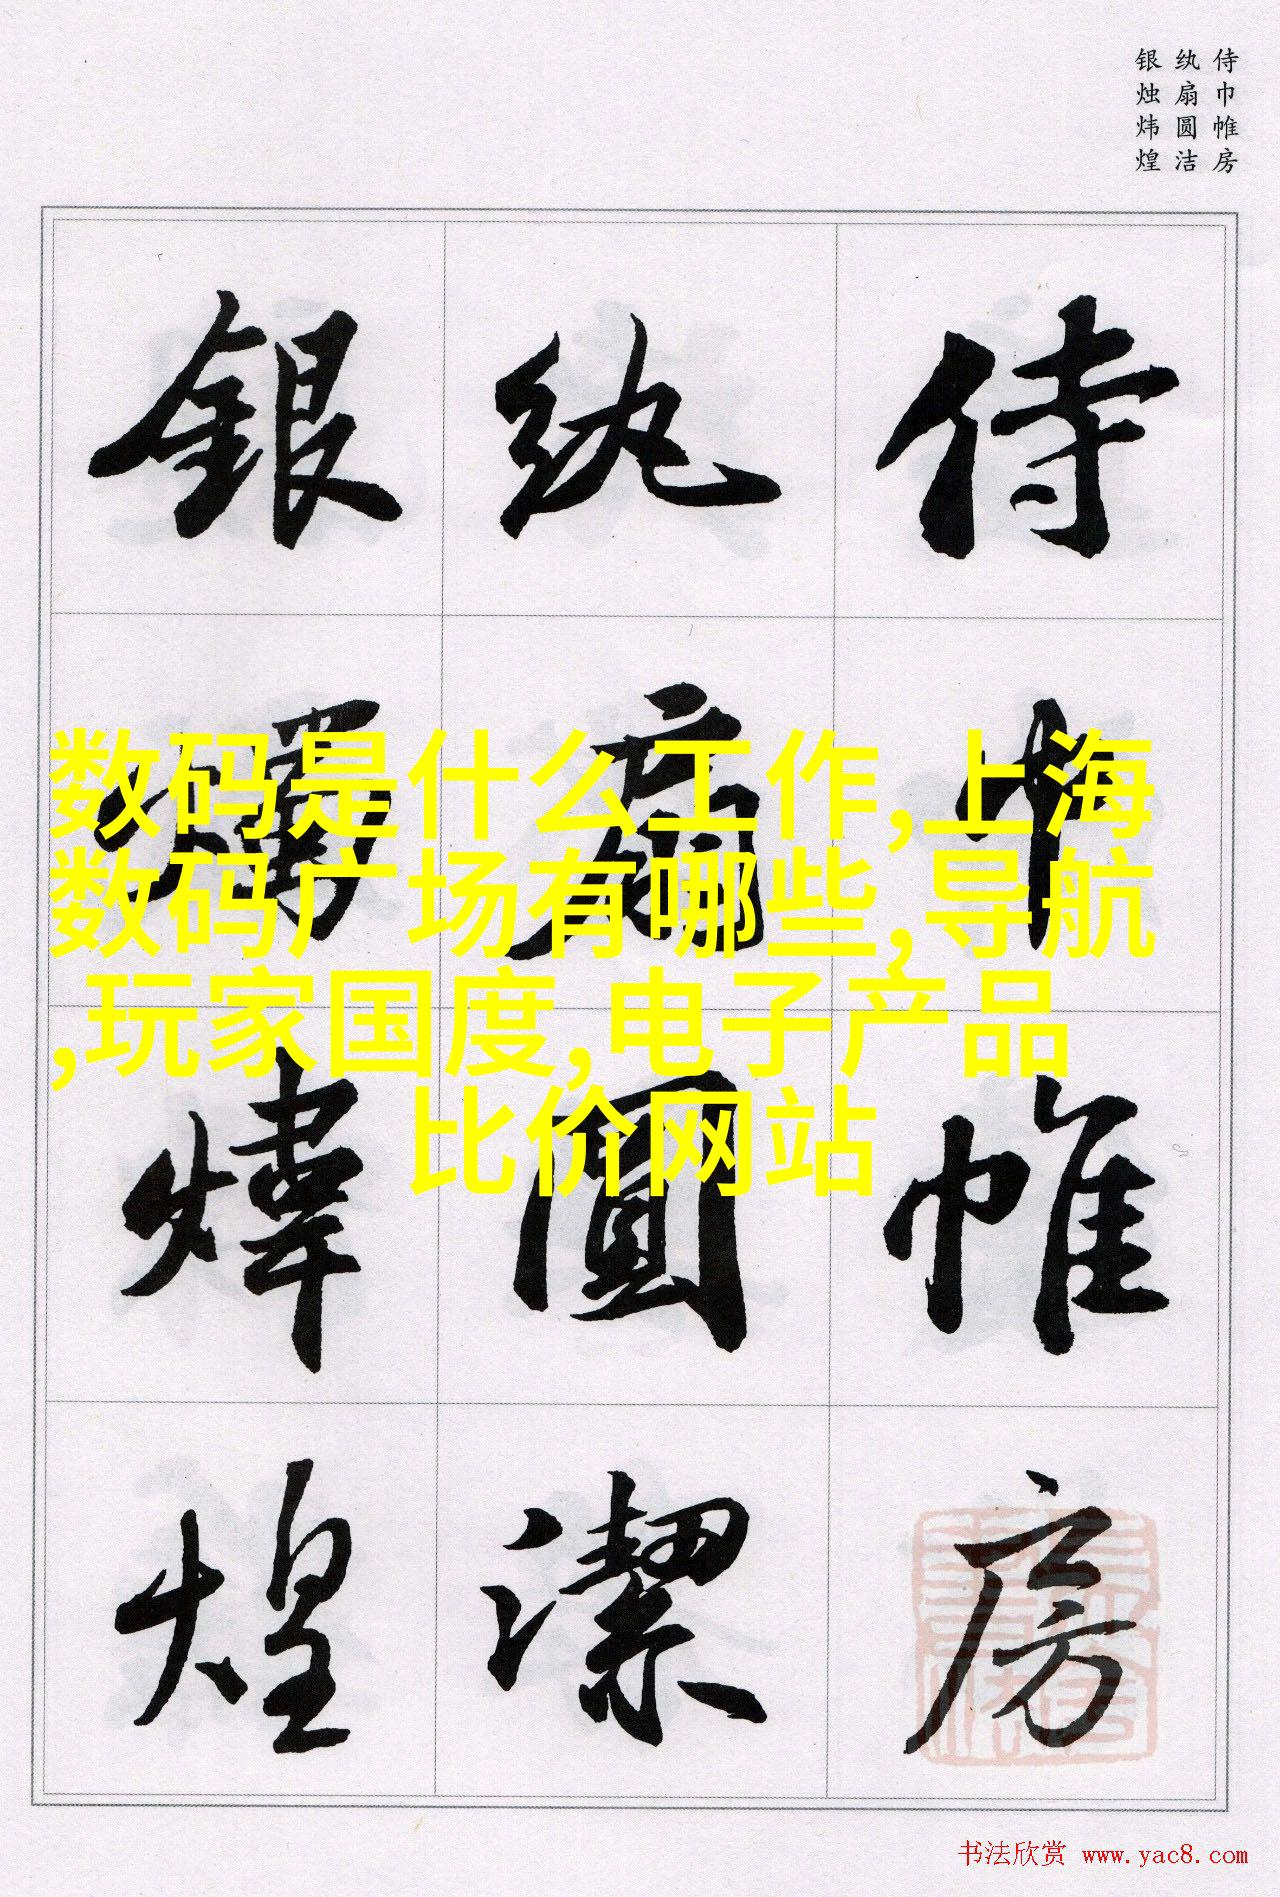 侍巾帷房
纨扇圆洁
银烛炜煌
侍巾帷房
纨扇圓潔
銀燭煒煌
数码是什么工作,上海
数码广场有哪些,导航
,玩家国度,电子产品
比价网站
书法欣赏 www.yac8.com